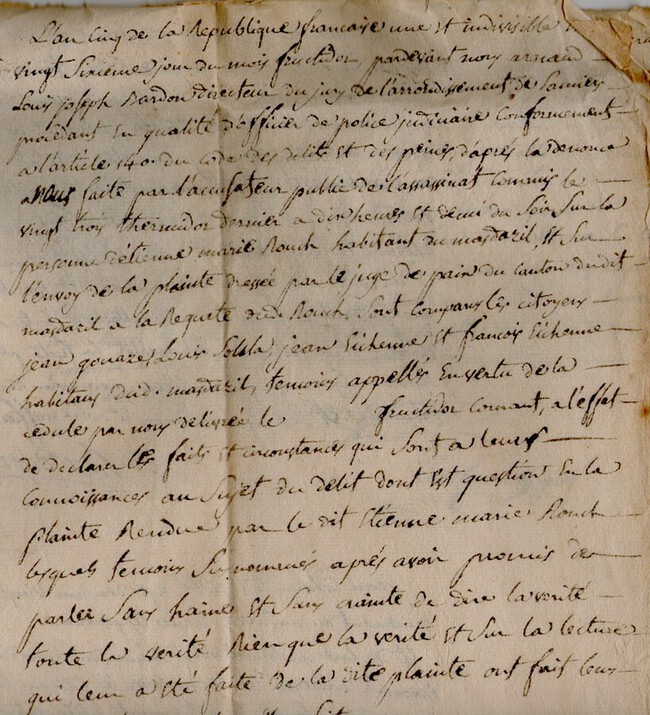 L'an cinq de la Republique francaise une et indivisible
vingt sixieme jour du mois fructidor, pardevant nous arnaud
Louis joseph Bardon directeur du jury de l'arrondissement de Pamiers
procedant En qualité d'officier de police judiciaire Conformement
a l'article 140. du code des delits Et des peines, d'aprés la denonce
a nous faite par l'accusateur public de l'assassinat Commis le
vingt trois thermidor dernier a dix heures Et demi du Soir Sur la
personne d'étienne marie Rouch habitant du masdazil, Et Sur
l'envoy de la plainte dressée par le juge de paix du Canton dudit
masdazil a la Requete dud. Rouch, Sont Comparus les citoyens
jean gouaze, Louis jean Eichenne Et francois Eichenne
habitans dud. masdazil, temoins appellés En vertu de la
cedule par nous delivrée le fructidor courant, a l'effet
de declarer les faits Et circonstances qui Sont a leurs
Connoissances au Sujet du delit dont Est question En la
plainte Rendue par le dit Etienne marie Rouch
lesquels temoins Susnommés aprés avoir promis de
parler Sans haine Et Sans crainte de dire la verité
toute la verité Rien que la verité Et Sur la lecture
qui leur a Eté faite de la dite plainte ont fait leur